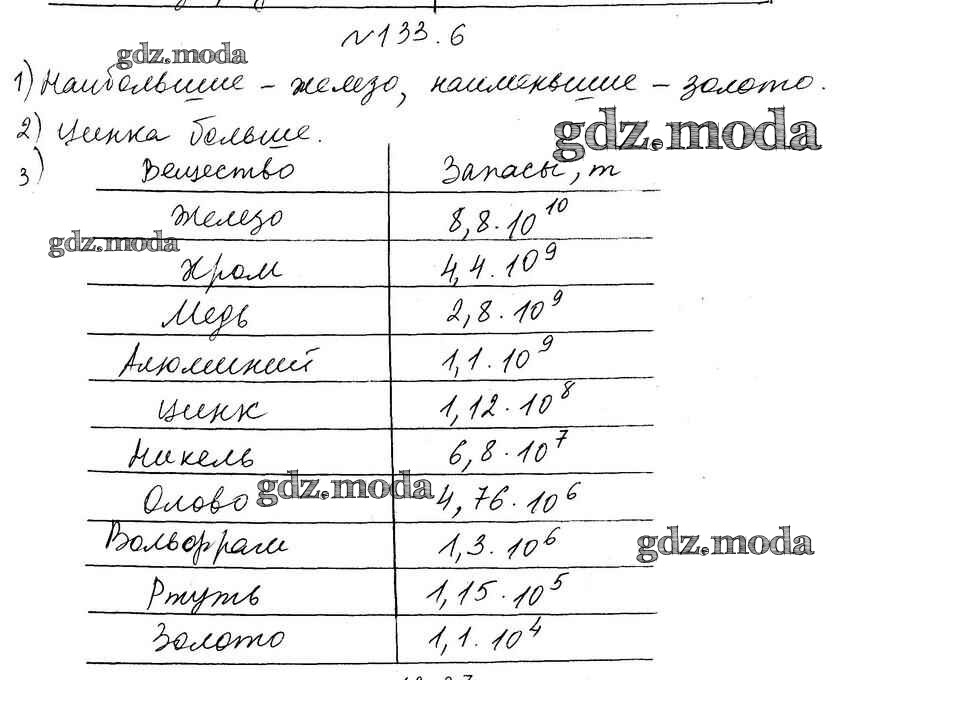 №133.6
gdz.moda
1) Наибольшие – железо, наименьшие – золото.
2) Цинка больше.
gdz.moda
3)
Вещество Запасы, т
Железо 8,8·10^10
gdz.moda
Хром 4,4·10^9
Медь 2,8·10^9
Алюминий 1,1·10^9
Цинк 1,12·10^8
Никель 6,8·10^7
gdz.moda
Олово 4,76·10^6
Вольфрам 1,3·10^6
gdz.moda
Ртуть 1,15·10^5
Золото 1,1·10^4